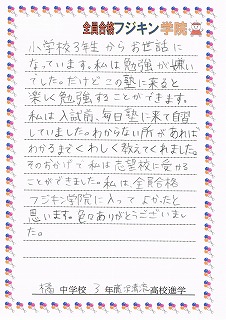 全員合格フジキン学院
小学校3年生からお世話に
なっています。私は勉強が嫌い
でした。だけどこの塾に来ると
楽しく勉強することができます。
私は入試前、毎日塾に来て自習
していました。わからない所があれば
わかるまでくわしく教えてくれました。
そのおかげで私は志望校に受かる
ことができました。私は、全員合格
フジキン学院に入ってよかったと
思います。色々ありがとうございまし
た。
橘中学校 3年 高校進学